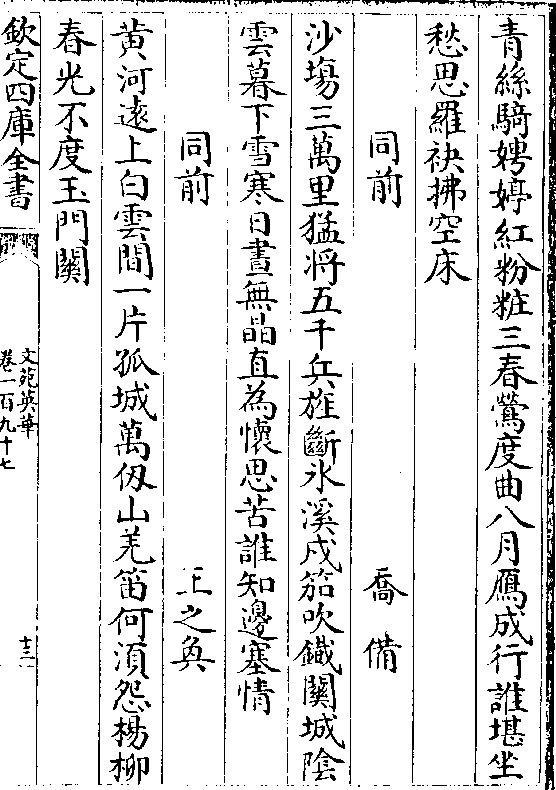 青絲騎娉婷紅粉粧三春鶯度曲八月鴈成行誰堪坐
愁思羅袂拂空床
同前　喬備
沙塲三萬里猛将五千兵旌斷氷溪戍笳吹鐡關城陰
雲暮下雪寒日晝無晶直為懷思苦誰知邊塞情
同前　王之奐
黄河逺上白雲間一片孤城萬仭山羌笛何湏怨楊柳
春光不度玉門關
欽定四庫全書
文苑英華
卷一百九十七
十三